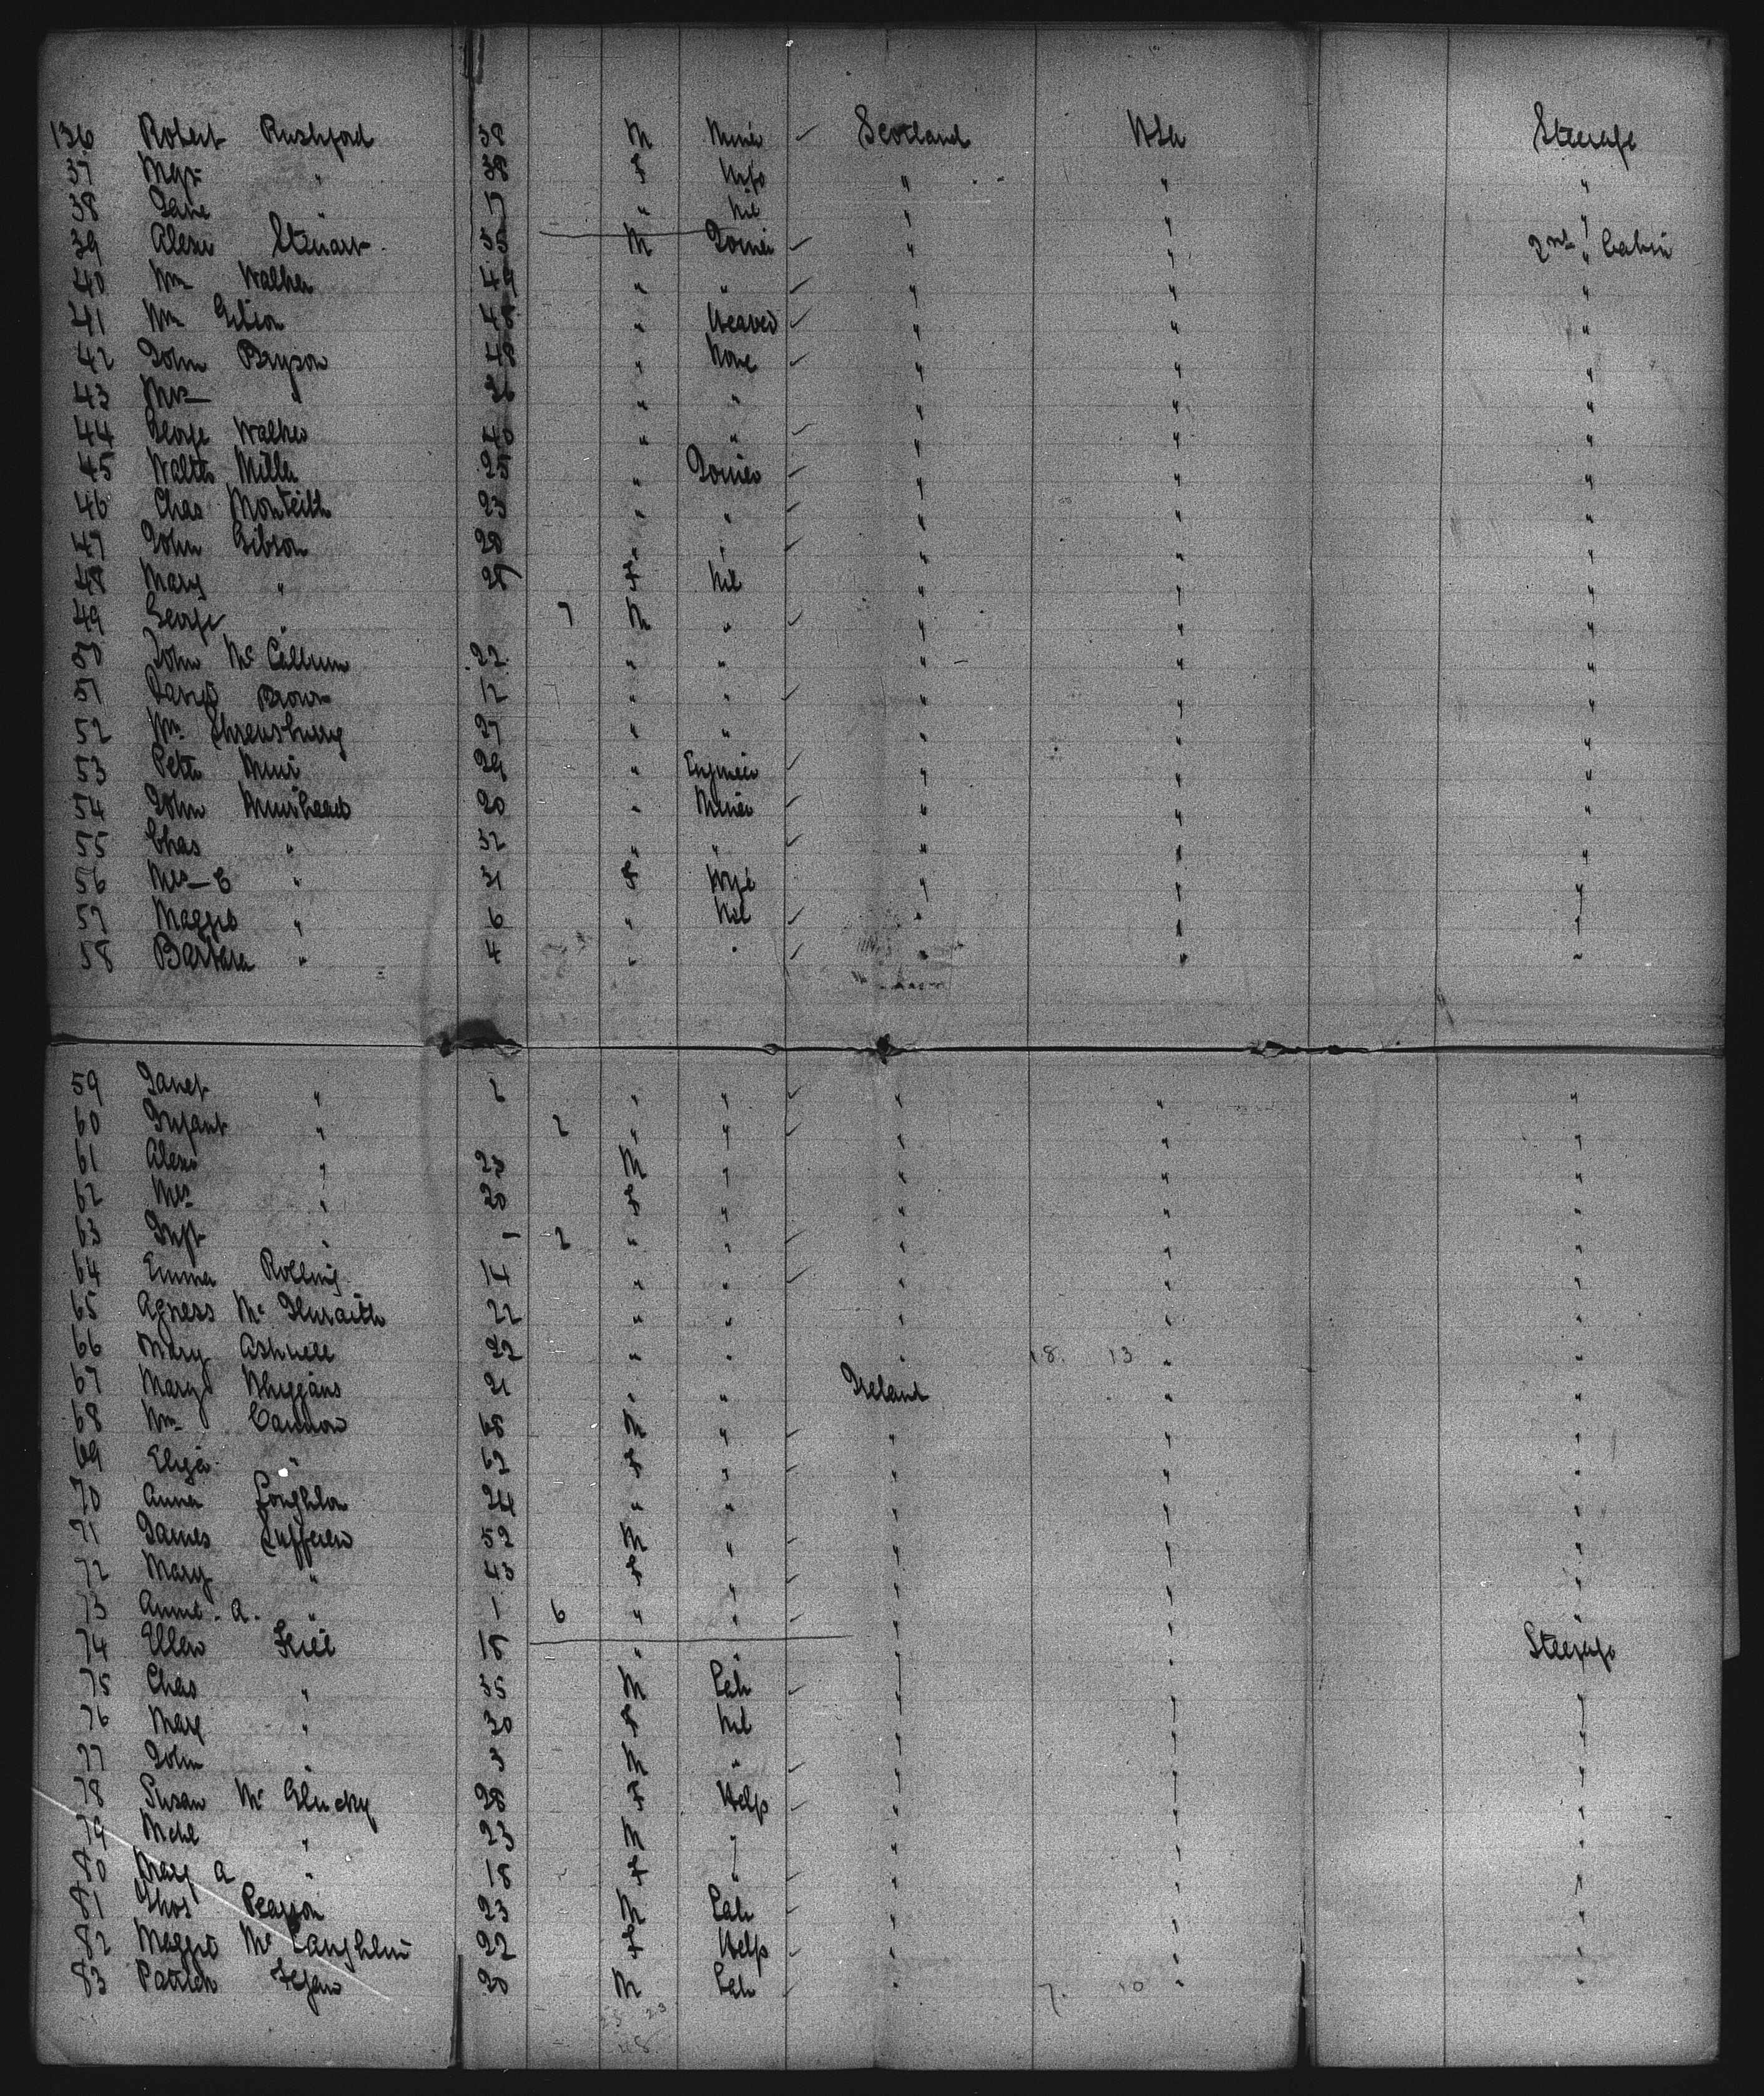 136 Robert Rushford 38 M Miner ✓ Scotland USA Steerage
37 " 38 F Wife " " "
38 Jane " 17 " Nil " " "
39 Alexr Stewart 55 M Joiner ✓ " " 2nd Cabin
40 Wm Walker 44 " " ✓ " " "
41 Wm Gibson 48 " Weaver ✓ " " "
42 John Bryson 48 " None ✓ " " "
43 Mrs " " " " " "
44 George Walker 40 " " ✓ " " "
45 Walter Miller 25 " Joiner ✓ " " "
46 Chas Monteith 23 " " ✓ " " "
47 John Gibson 28 " " ✓ " " "
48 Mary " 27 F Nil " " "
49 George " 7 M " ✓ " " "
50 John Mc Callum 22 " " " " "
51 David Brown 12 " " ✓ " " "
52 Wm Shrewsbury 27 " " " " "
53 Peter Muir 29 " Engineer ✓ " " "
54 John Muirhead 20 " Miner ✓ " " "
55 Chas " 32 " " ✓ " " "
56 Mrs - C " 31 F Wife " " "
57 Maggie " 6 " Nil ✓ " " "
58 Barbara " 4 " " ✓ " " "
59 Janet " 2 " " ✓ " " "
60 Infant " 2 " " ✓ " " "
61 Alexr " 23 M " " " "
62 Mrs " 20 F " " " "
63 Inft " - 2 " " ✓ " " "
64 Emma Rolling 14 " " ✓ " " "
65 Agness Mc Ilwraith 22 " " " " "
66 Mary 22 " " " 18. 13 " "
67 Mary 21 " " Ireland " "
68 Wm Cannon 68 M " ✓ " " "
69 Eliza " 62 F " " " "
70 Anna Loughlon 24 " " " " "
71 James Sufferen 52 M " ✓ " " "
72 Mary " 43 F " ✓ " " "
73 Annie. A. " 1 6 " " ✓ " " "
74 Ellen Friel 18 " " " " Steerage
75 Chas " 35 M Lab ✓ " " "
76 Mary " 30 F Nil " " "
77 John " 3 M " ✓ " " "
78 Susan Mc Glucky 28 F Help ✓ " " "
79 " 23 M " " " "
80 Mary A " 18 F " ✓ " " "
81 Thos Pearson 23 M Lab ✓ " " "
82 Maggie Mc Laughlin 22 F Help ✓ " " "
83 Patrick 20 M Lab ✓ " 7. 10 " "
25 23
48